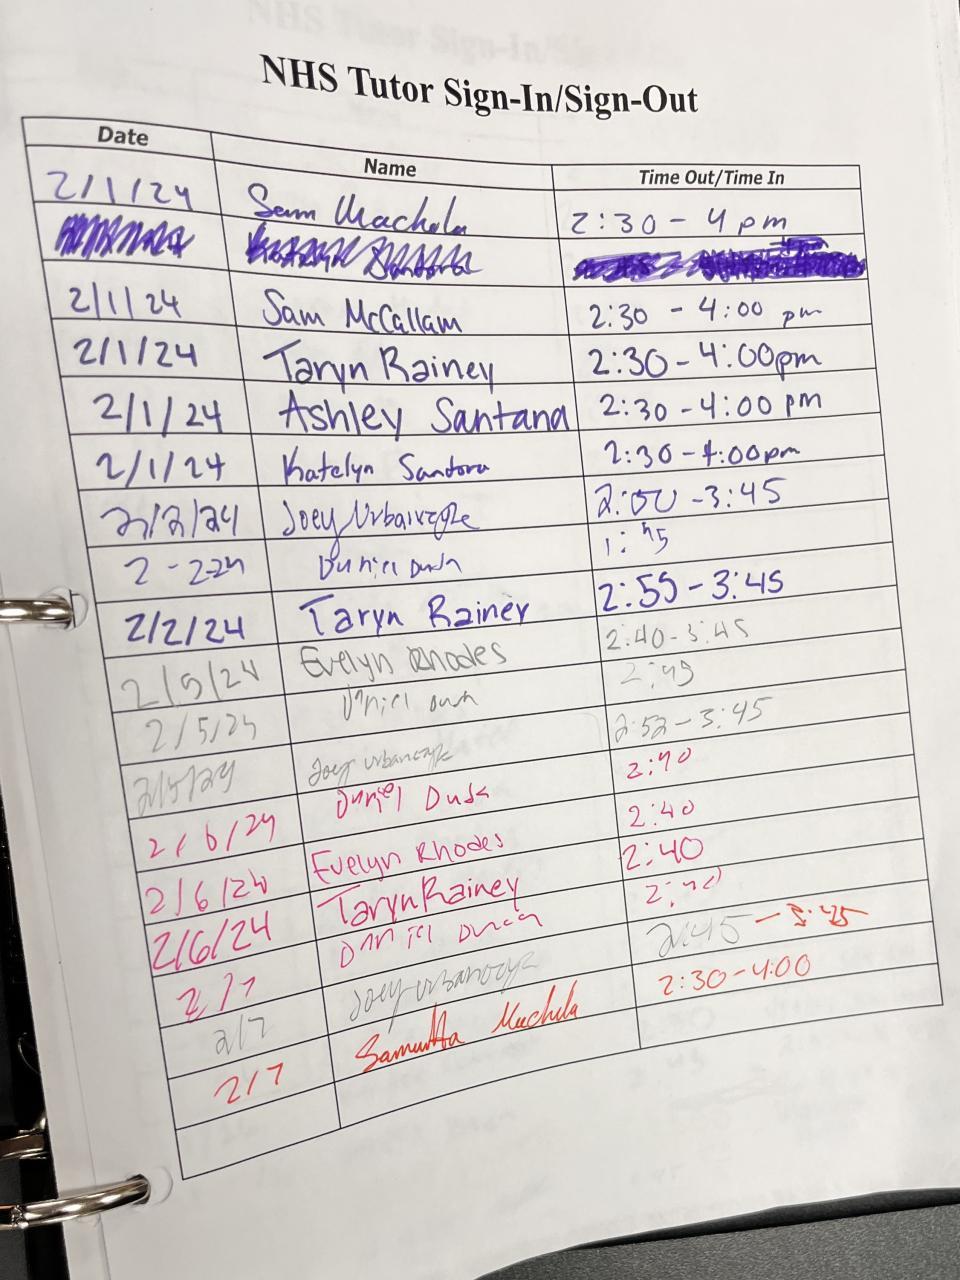 NHS Tutor Sign-In/Sign-Out
Date Name Time Out/Time In
2/1/24 Sam Machela 2:30 - 4 pm
2/1/24 Sam McCallam 2:30 - 4:00 pm
2/1/24 Taryn Rainey 2:30 - 4:00pm
2/1/24 Ashley Santana 2:30 - 4:00 pm
2/1/24 Katelyn Santora 2:30 - 4:00pm
2/2/24 Joey 2:00 - 3:45
2-2-24 Daniel 1:45
2/2/24 Taryn Rainey 2:55 - 3:45
2/5/24 Evelyn Rhodes 2:40 - 3:45
2/5/24 Daniel 2:45
2/5/24 Joey Urbanczyk 2:52 - 3:45
2/6/24 Daniel 2:40
2/6/24 Evelyn Rhodes 2:40
2/6/24 Taryn Rainey 2:40
2/7 Daniel 2:40
2/7 Joey Urbanczyk 2:45 - 3:45
2/7 Samantha Machela 2:30 - 4:00